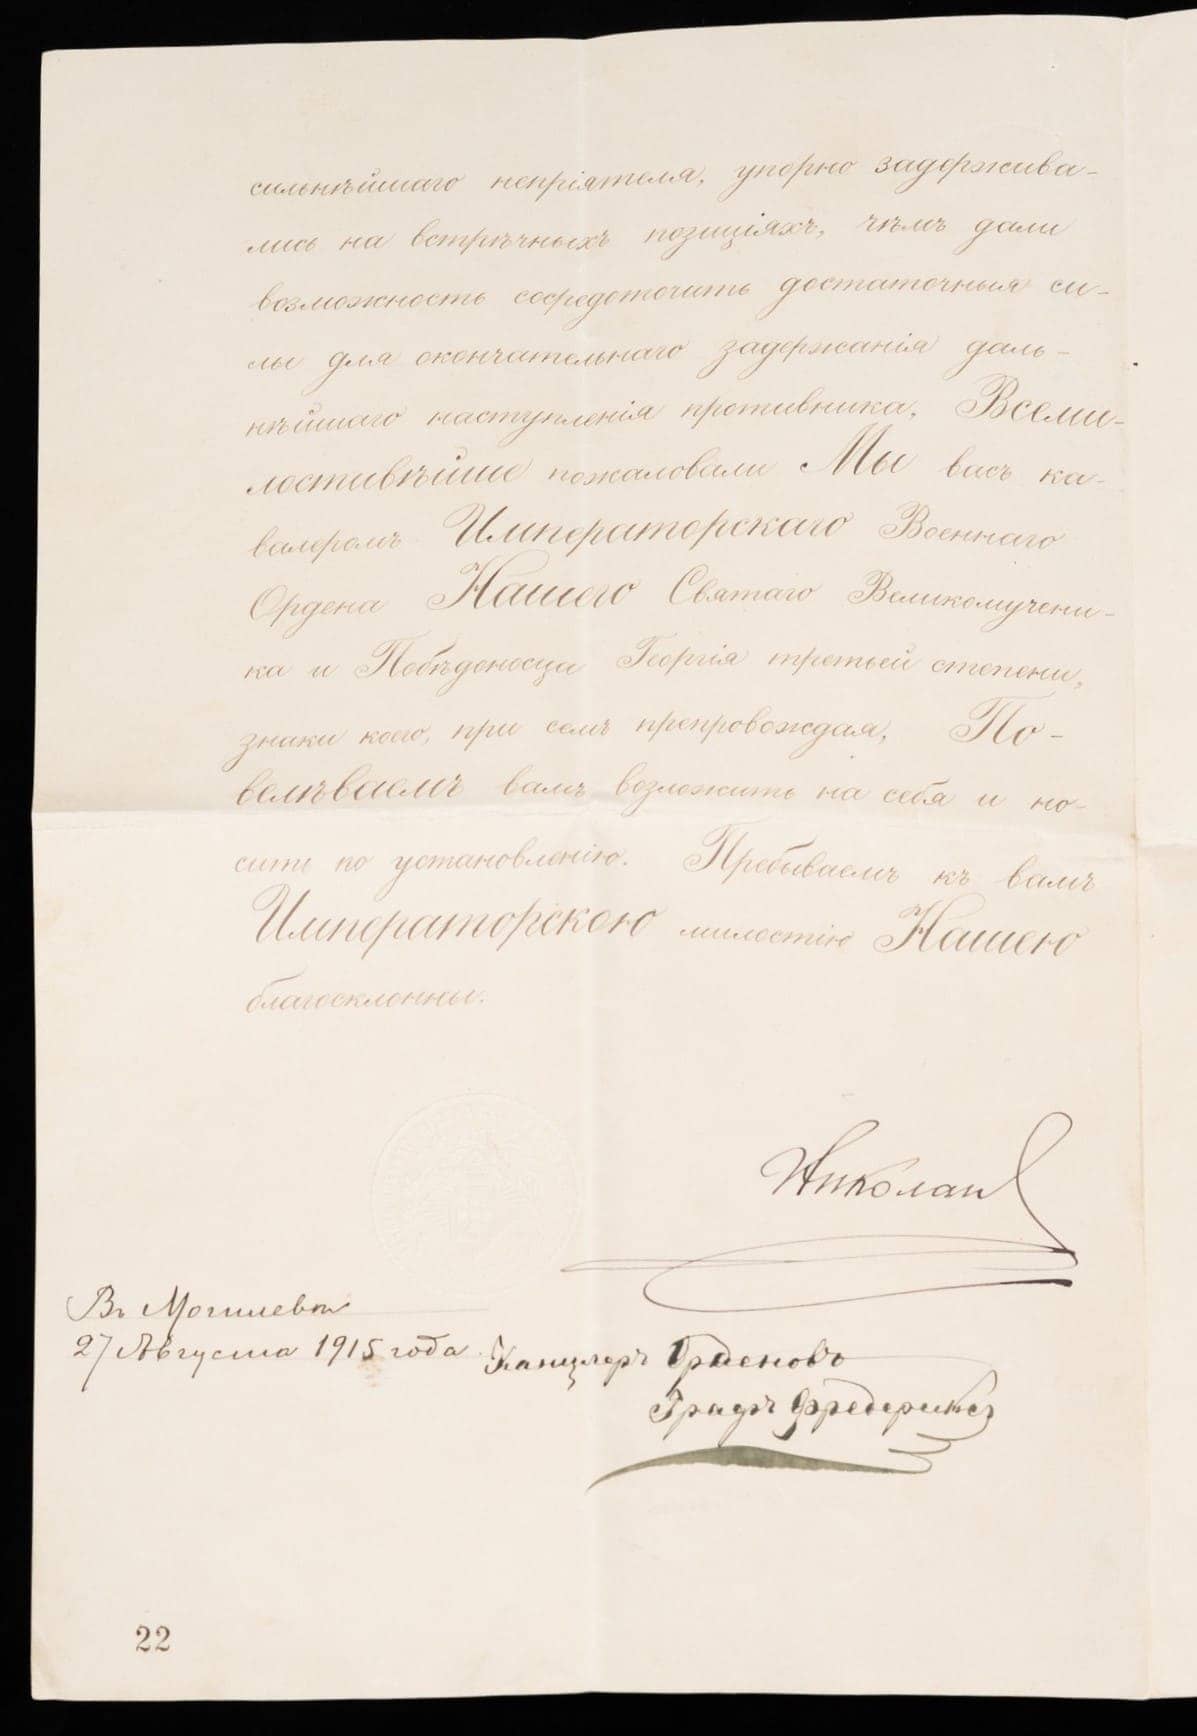 сильнѣйшаго непріятеля, упорно задержива-
лись на встрѣчныхъ позиціяхъ, чѣмъ дали
возможность сосредоточить достаточныя си-
лы для окончательнаго задержанія даль-
нѣйшаго наступленія противника, Всеми-
лостивѣйше пожаловали Мы васъ ка-
валеромъ Императорскаго Военнаго
Ордена Нашего Святаго Великомучени-
ка и Побѣдоносца Георгія третьей степени,
знаки коего, при семъ препровождая, По-
велѣваемъ вамъ возложить на себя и но-
сить по установленію. Пребываемъ къ вамъ
Императорскою милостію Нашею
благосклонны.
Николай
Въ Могилевѣ
27 Августа 1915 года
Канцлеръ Орденовъ
Графъ Фредериксъ
22